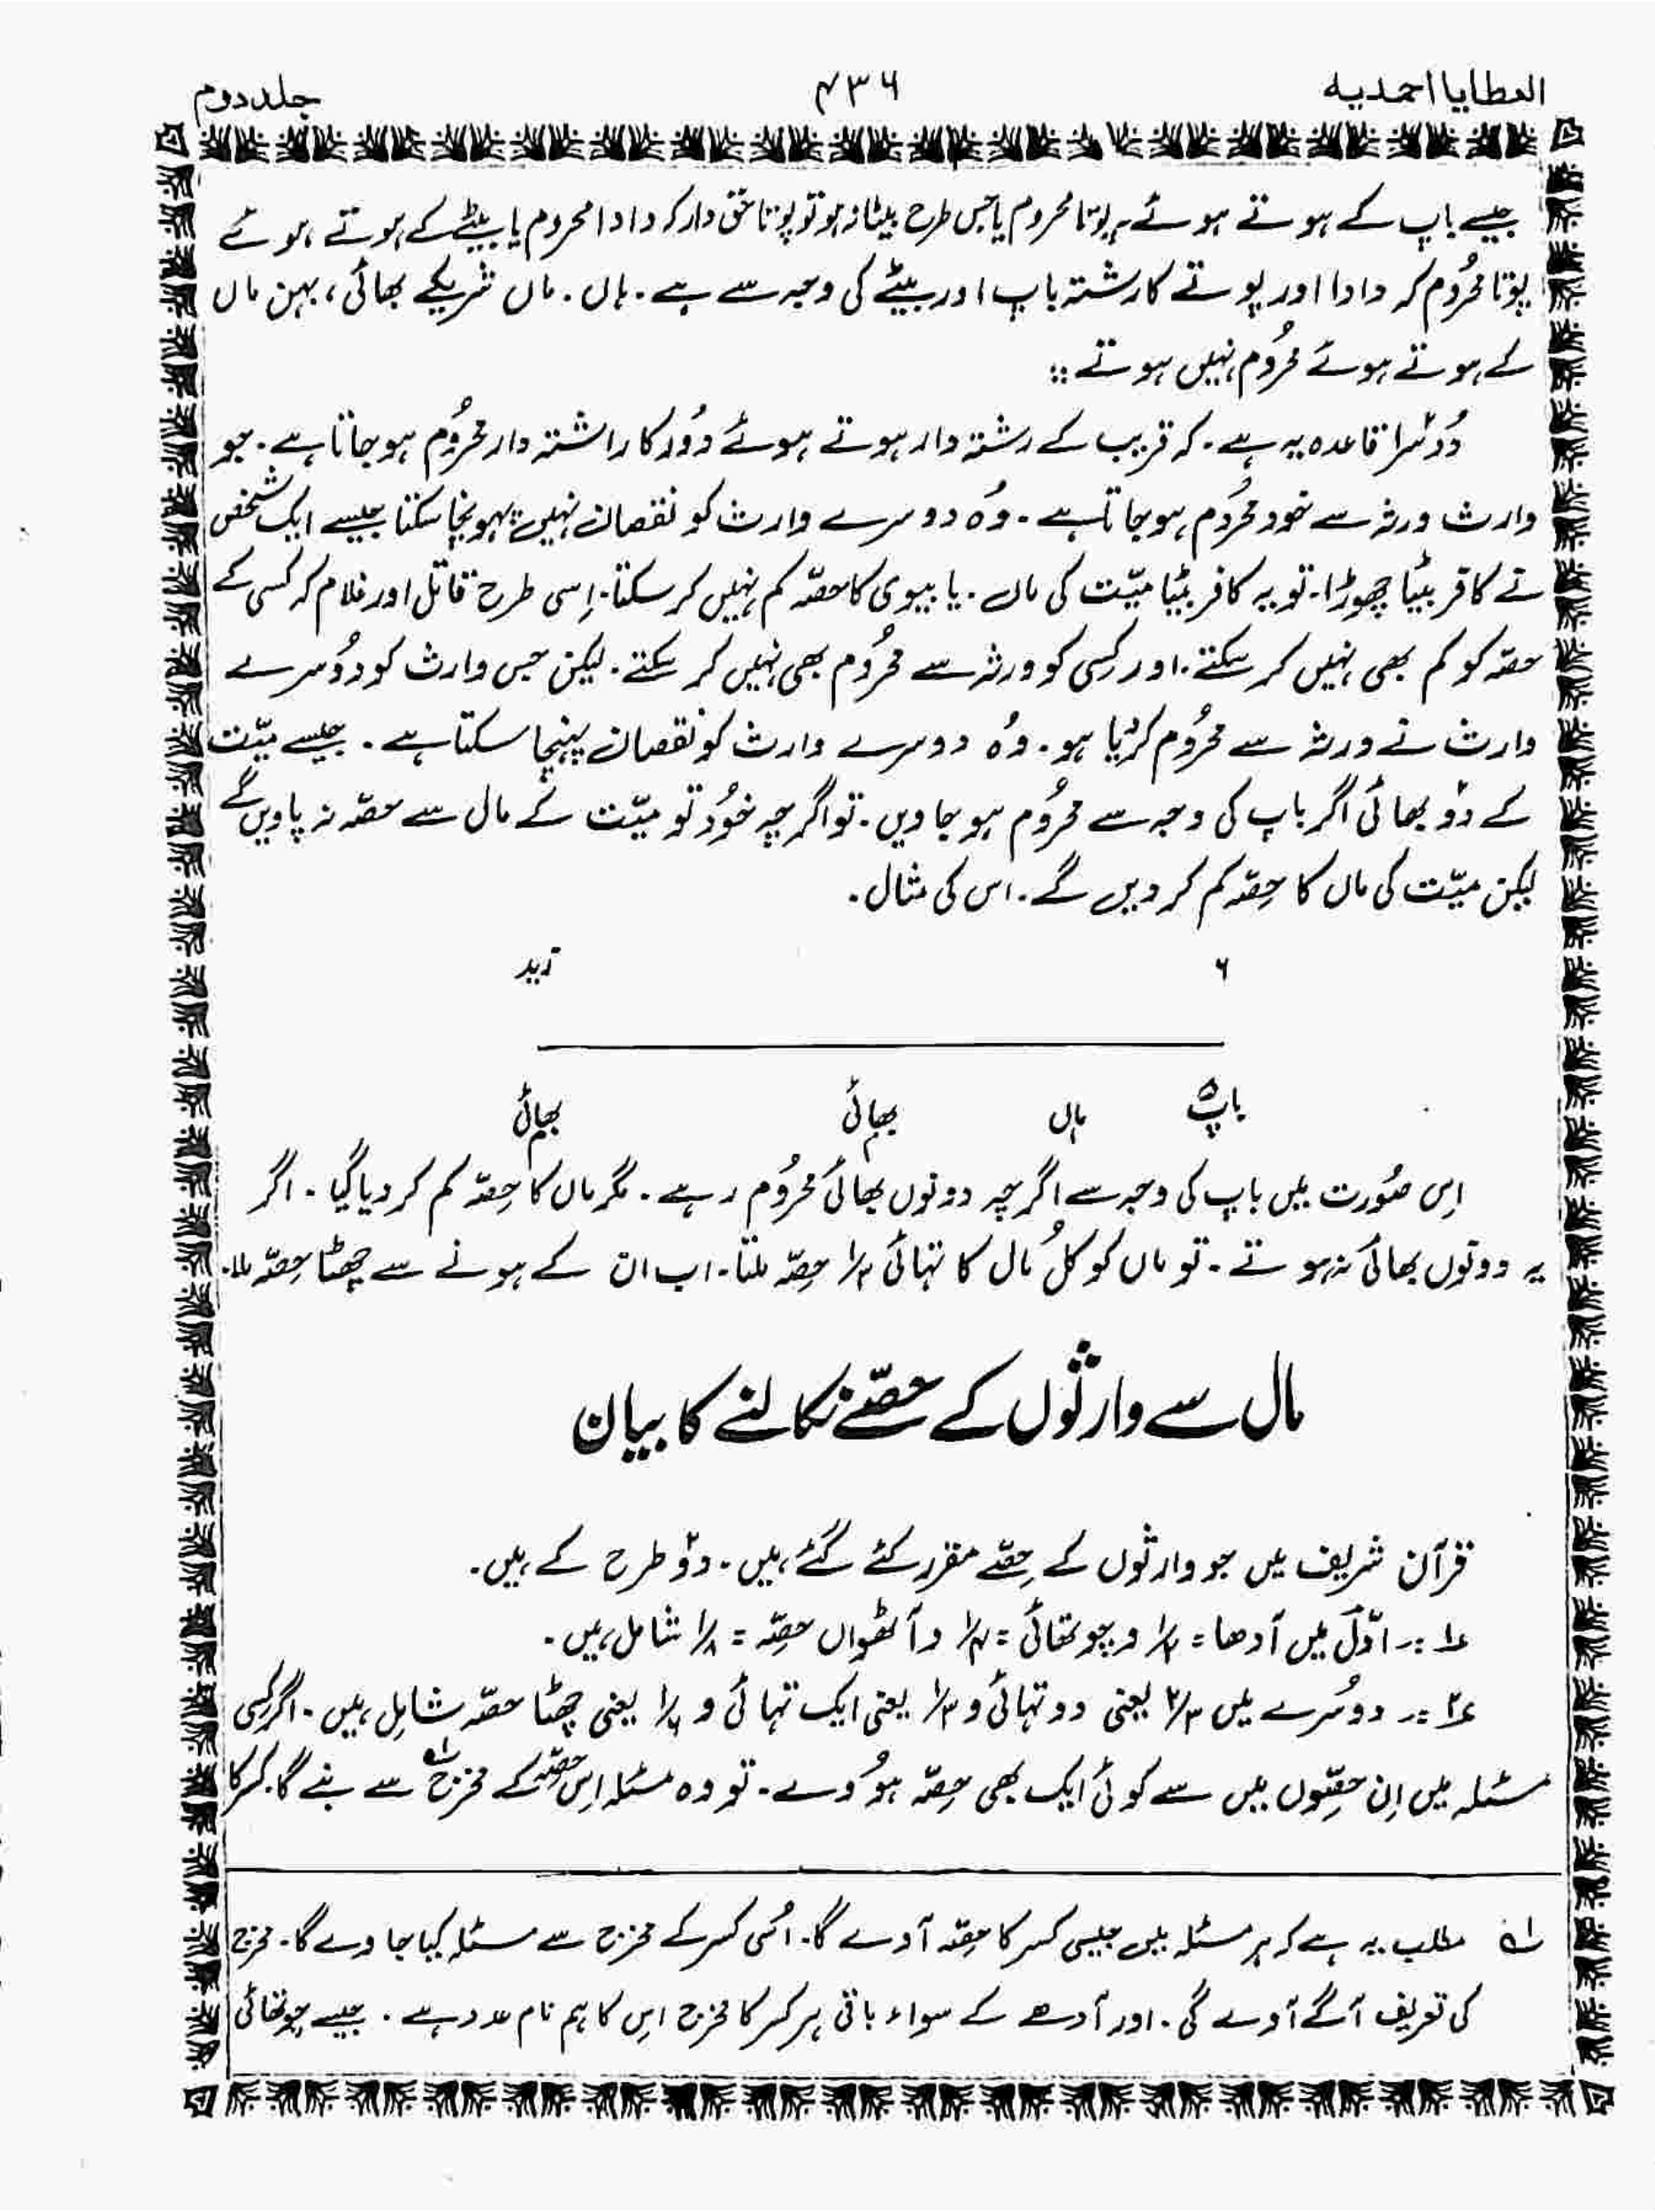 العطایا احمدیہ
۴۳۶
جلد دوم
جیسے باپ کے ہوتے ہوئے پوتا محروم یا جس طرح بیٹا نہ ہو تو پوتا حق دار کہ دادا محروم یا بیٹے کے ہوتے ہوئے
پوتا محرُوم کہ دادا اور پوتے کا رشتہ باپ اور بیٹے کی وجہ سے ہے۔ ہاں۔ ماں شریکے بھائی، بہن ماں
کے ہوتے ہوئے محرُوم نہیں ہوتے ::
دُوسرا قاعدہ یہ ہے۔ کہ قریب کے رشتہ دار ہوتے ہوئے دُور کا راشتہ دار محرُوم ہو جاتا ہے۔ جو
وارث ورثہ سے خود محرُوم ہو جاتا ہے۔ وُہ دوسرے وارث کو نقصان نہیں پہونچا سکتا جیسے ایک شخص
نے کافر بیٹا چھوڑا۔ تو یہ کافر بیٹا میّت کی ماں۔ یا بیوی کا حصّہ کم نہیں کر سکتا۔ اِسی طرح قاتل اور غلام کہ کسی کے
حصّہ کو کم بھی نہیں کر سکتے۔ اور کِسی کو ورثہ سے محرُوم بھی نہیں کر سکتے۔ لیکن جس وارث کو دُوسرے
وارث نے ورثہ سے محرُوم کر دیا ہو۔ وُہ دوسرے وارث کو نقصان پہنچا سکتا ہے۔ جیسے میّت
کے دو بھائی اگر باپ کی وجہ سے محرُوم ہو جاویں۔ تو اگرچہ خُود تو میّت کے مال سے حصّہ نہ پاویں گے
لیکن میّت کی ماں کا حِصّہ کم کر دیں گے۔ اس کی مثال۔
۶ زید
باپ ۵ ماں ۱ بھائی بھائی
اِس صُورت میں باپ کی وجہ سے اگرچہ دونوں بھائی محرُوم رہے۔ مگر ماں کا حِصّہ کم کر دیا گیا۔ اگر
یہ دونوں بھائی نہ ہوتے۔ تو ماں کو کُل مال کا تہائی ۱/۳ حِصّہ ملتا۔ اب ان کے ہونے سے چھٹا حِصّہ ملا۔
مال سے وارثوں کے حصّے نکالنے کا بیان
قرآن شریف میں جو وارثوں کے حِصّے مقرر کئے گئے ہیں۔ دو طرح کے ہیں۔
۱؎ :۔ اوّل میں آدھا = ۱/۲ و چوتھائی = ۱/۴ و آٹھواں حصّہ = ۱/۸ شامل ہیں۔
۲؎ :۔ دوسُرے میں ۲/۳ یعنی دو تہائی و ۱/۳ یعنی ایک تہائی و ۱/۶ یعنی چھٹا حصّہ شامِل ہیں۔ اگر کِسی
مسئلہ میں اِن حصّوں میں سے کوئی ایک بھی حِصّہ ہُووے۔ تو وہ مسئلہ اِس حِصّہ کے مخرج۱؎ سے بنے گا۔ کسر کا
۱؎ مطلب یہ ہے کہ ہر مسئلہ میں جیسی کسر کا حِصّہ آوے گا۔ اُسی کسر کے مخرج سے مسئلہ کیا جاوے گا۔ مخرج
کی تعریف آگے آوے گی۔ اور آدھے کے سواء باقی ہر کسر کا مخرج اِس کا ہم نام عدد ہے۔ جیسے چوتھائی